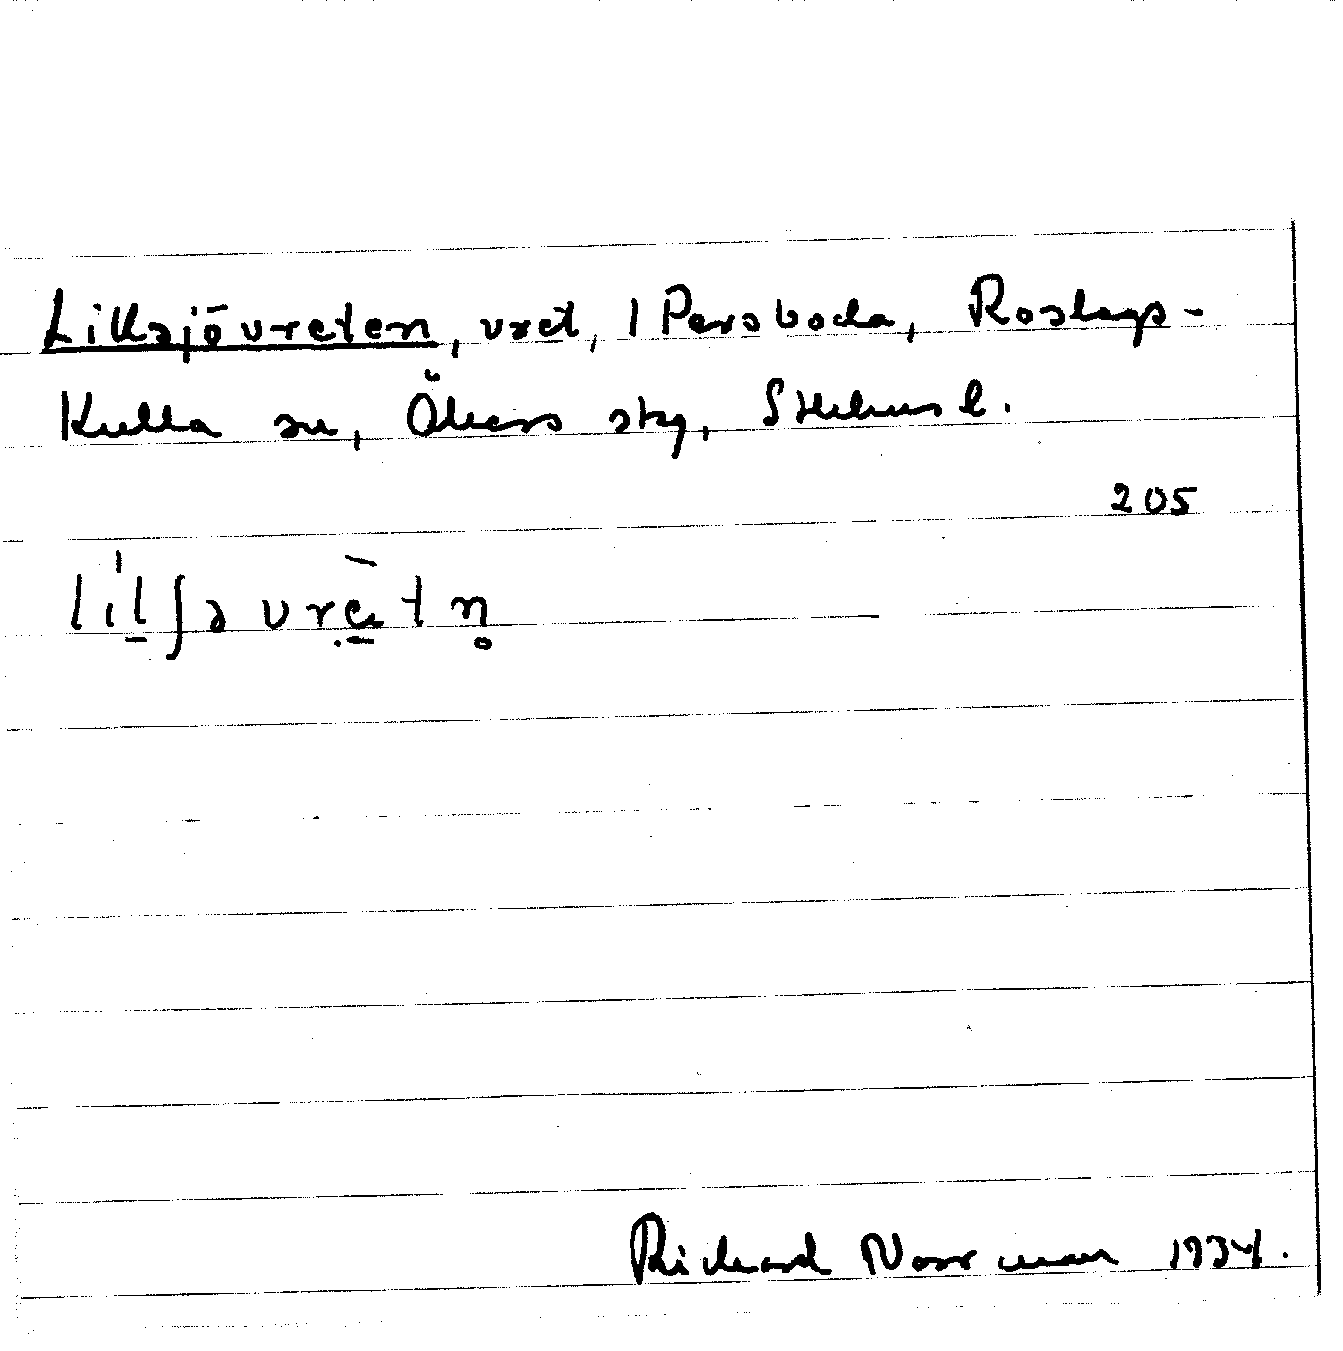 Lillsjövreten, vret, 1 Persboda, Roslags-
Kulla sn, Åkers skg, Sthlms l.
205
lilʃəvretn̥
Richard Norrman 1934.